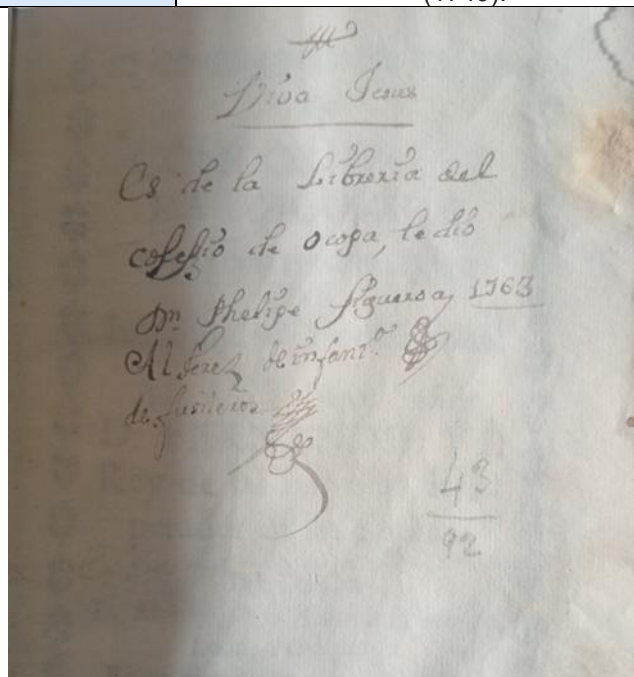 Viva Jesus
Es de la Libreria del
colessio de Ocopa, le dio
Dn Phelipe figueroa, 1763
Alferez de infant.ª
de fusileros
43
92